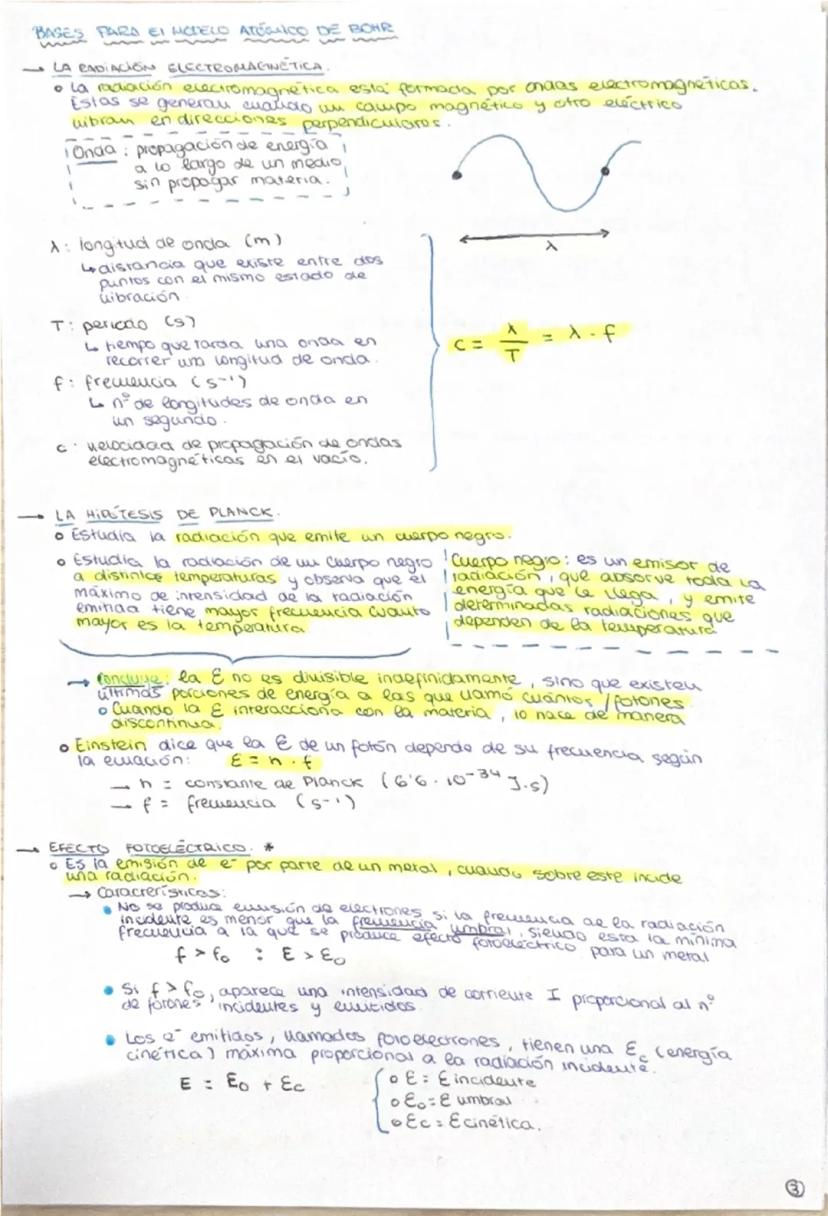 BASES PARA El MODELO ATÓMICO DE BOHR
→ LA RADIACIÓN ELECTROMAGNÉTICA.
o La radiación electromagnética está formada por ondas electromagnéticas.
Estas se generan cuando un campo magnético y otro eléctrico
vibran en direcciones perpendiculares.
Onda: propagación de energía
a lo largo de un medio
sin propagar materia.
λ
λ: longitud de onda (m)
↳ distancia que existe entre dos
puntos con el mismo estado de
vibración.
T: periodo (s)
↳ tiempo que tarda una onda en
recorrer una longitud de onda.
f: frecuencia (s⁻¹)
↳ nº de longitudes de onda en
un segundo.
c: velocidad de propagación de ondas
electromagnéticas en el vacío.
c = λ/T = λ · f
→ LA HIPÓTESIS DE PLANCK.
o Estudia la radiación que emite un cuerpo negro.
o Estudia la radiación de un cuerpo negro
a distintas temperaturas y observa que el
máximo de intensidad de la radiación
emitida tiene mayor frecuencia cuanto
mayor es la temperatura
Cuerpo negro: es un emisor de
radiación, que absorve toda la
energía que le llega, y emite
determinadas radiaciones que
dependen de la temperatura
→ Concluye: la E no es divisible indefinidamente, sino que existen
últimas porciones de energía a las que llamó cuantos/fotones.
o Cuando la E interacciona con la materia, lo hace de manera
discontinua.
o Einstein dice que la E de un fotón depende de su frecuencia según
la ecuación: E = h · f
→ h = constante de Planck (6'6 · 10⁻³⁴ J·s)
→ f = frecuencia (s⁻¹)
→ EFECTO FOTOELÉCTRICO. *
o Es la emisión de e⁻ por parte de un metal, cuando sobre este incide
una radiación.
→ Características:
• No se produce emisión de electrones si la frecuencia de la radiación
incidente es menor que la frecuencia umbral, siendo esta la mínima
frecuencia a la que se produce efecto fotoeléctrico para un metal
f > f₀ : E > E₀
• Si f > f₀, aparece una intensidad de corriente I proporcional al nº
de fotones incidentes y emitidos.
• Los e⁻ emitidos, llamados fotoelectrones, tienen una Ec (energía
cinética) máxima proporcional a la radiación incidente.
E = E₀ + Ec
o E = E incidente
o E₀ = E umbral
o Ec = E cinética.
3